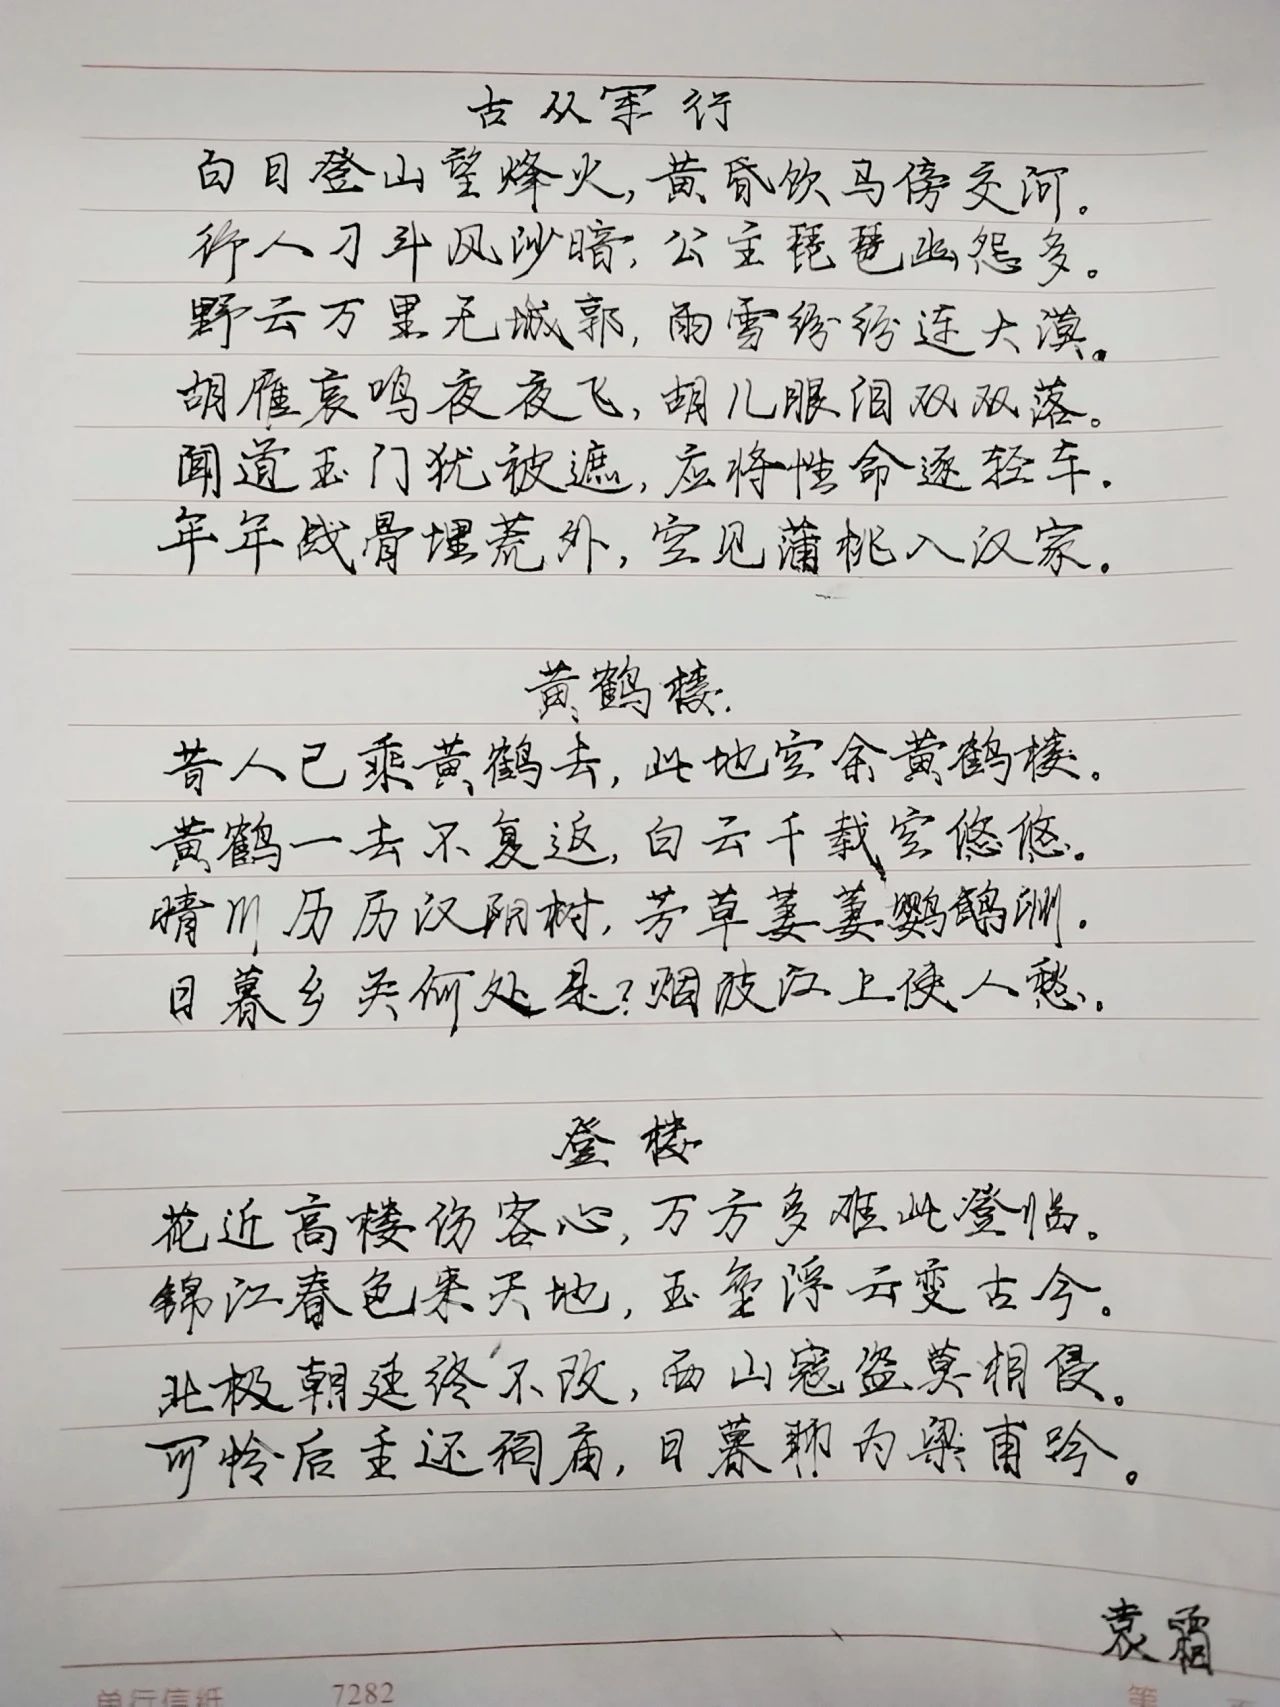 古从军行
白日登山望烽火,黄昏饮马傍交河。
行人刁斗风沙暗,公主琵琶幽怨多。
野云万里无城郭,雨雪纷纷连大漠。
胡雁哀鸣夜夜飞,胡儿眼泪双双落。
闻道玉门犹被遮,应将性命逐轻车.
年年战骨埋荒外,空见蒲桃入汉家.
黄鹤楼.
昔人已乘黄鹤去,此地空余黄鹤楼。
黄鹤一去不复返,白云千载空悠悠。
晴川历历汉阴树,芳草萋萋鹦鹉洲.
日暮乡关何处是?烟波江上使人愁.
登楼
花近高楼伤客心,万方多难此登临。
锦江春色来天地,玉垒浮云变古今。
北极朝廷终不改,西山寇盗莫相侵。
可怜后主还祠庙,日暮聊为梁甫吟。
袁霜
单行信纸 7282 第